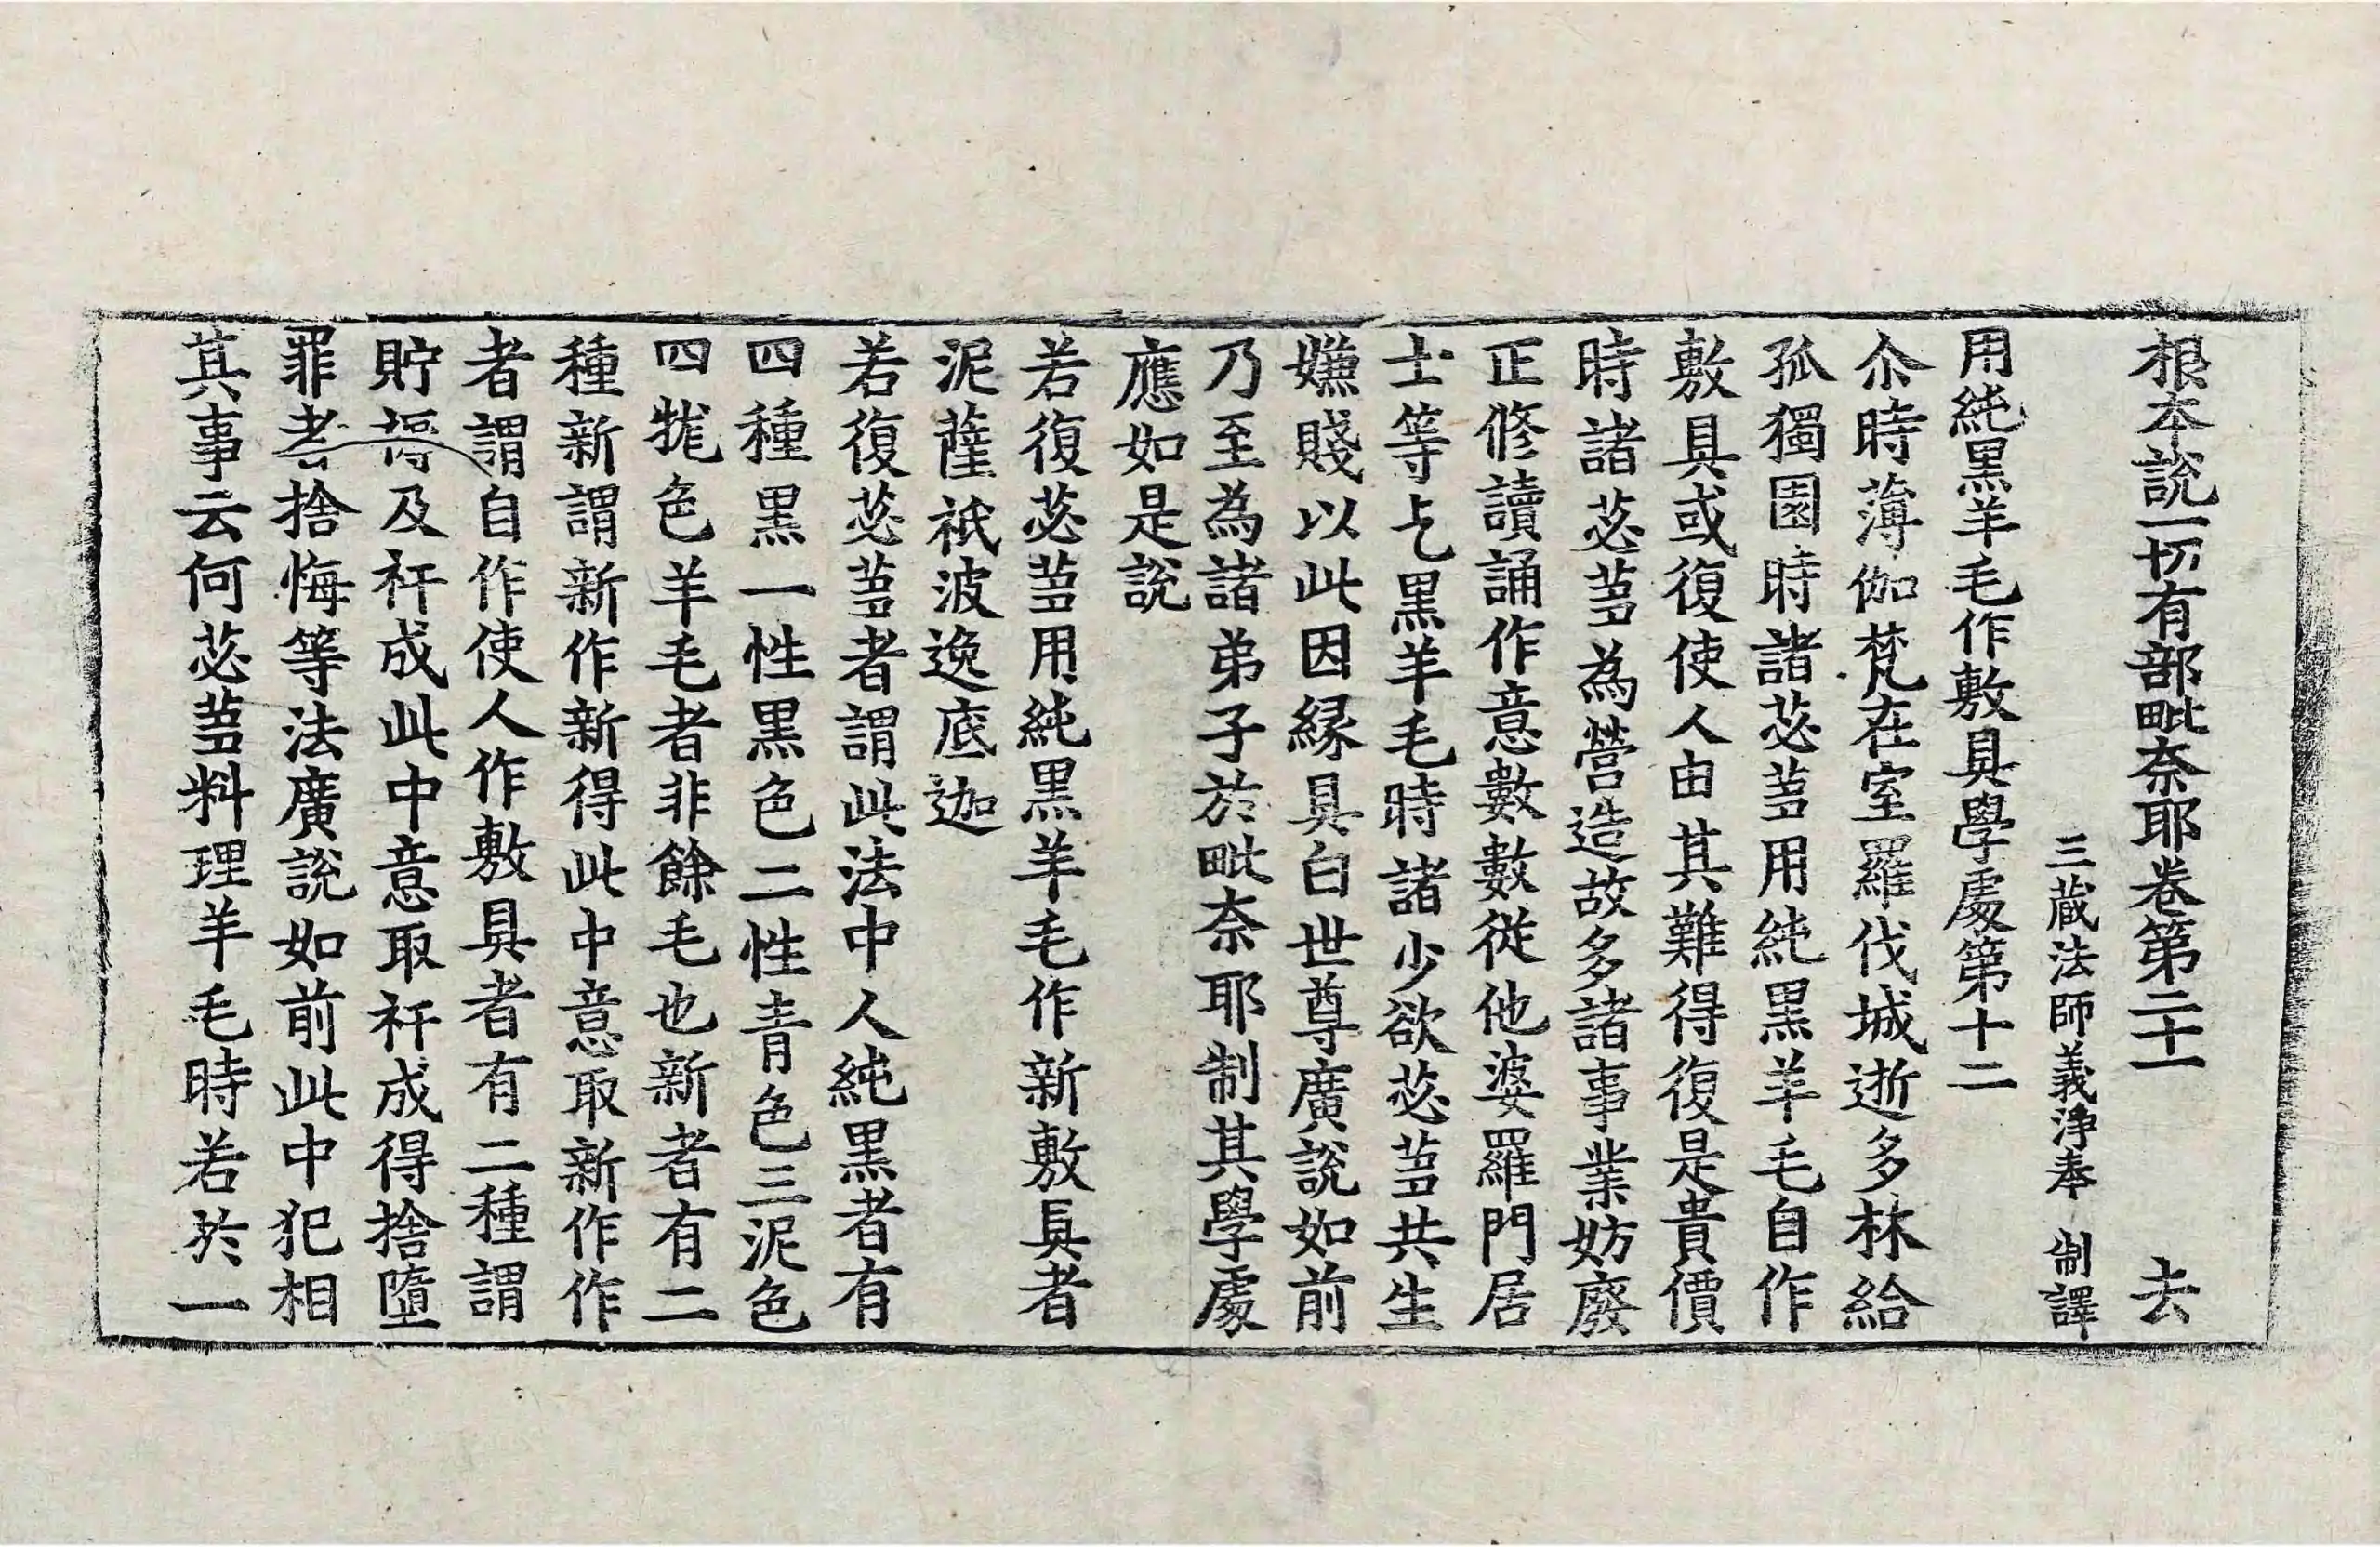 根本說一切有部毗奈耶卷第二十一 去
三藏法師義淨奉 制譯
用純黑羊毛作敷具學處第十二
尒時薄伽梵在室羅伐城逝多林給
孤獨園時諸苾蒭用純黑羊毛自作
敷具或復使人由其難得復是貴價
時諸苾蒭為營造故多諸事業妨廢
正修讀誦作意數數從他婆羅門居
士等乞黑羊毛時諸少欲苾蒭共生
嫌賤以此因緣具白世尊廣說如前
乃至為諸弟子於毗奈耶制其學處
應如是說
若復苾蒭用純黑羊毛作新敷具者
泥薩祇波逸底迦
若復苾蒭者謂此法中人純黑者有
四種黑一性黑色二性青色三泥色
四牻色羊毛者非餘毛也新者有二
種新謂新作新得此中意取新作作
者謂自作使人作敷具者有二種謂
貯褥及衦成此中意取衦成得捨墮
罪者捨悔等法廣說如前此中犯相
其事云何苾蒭料理羊毛時若於一